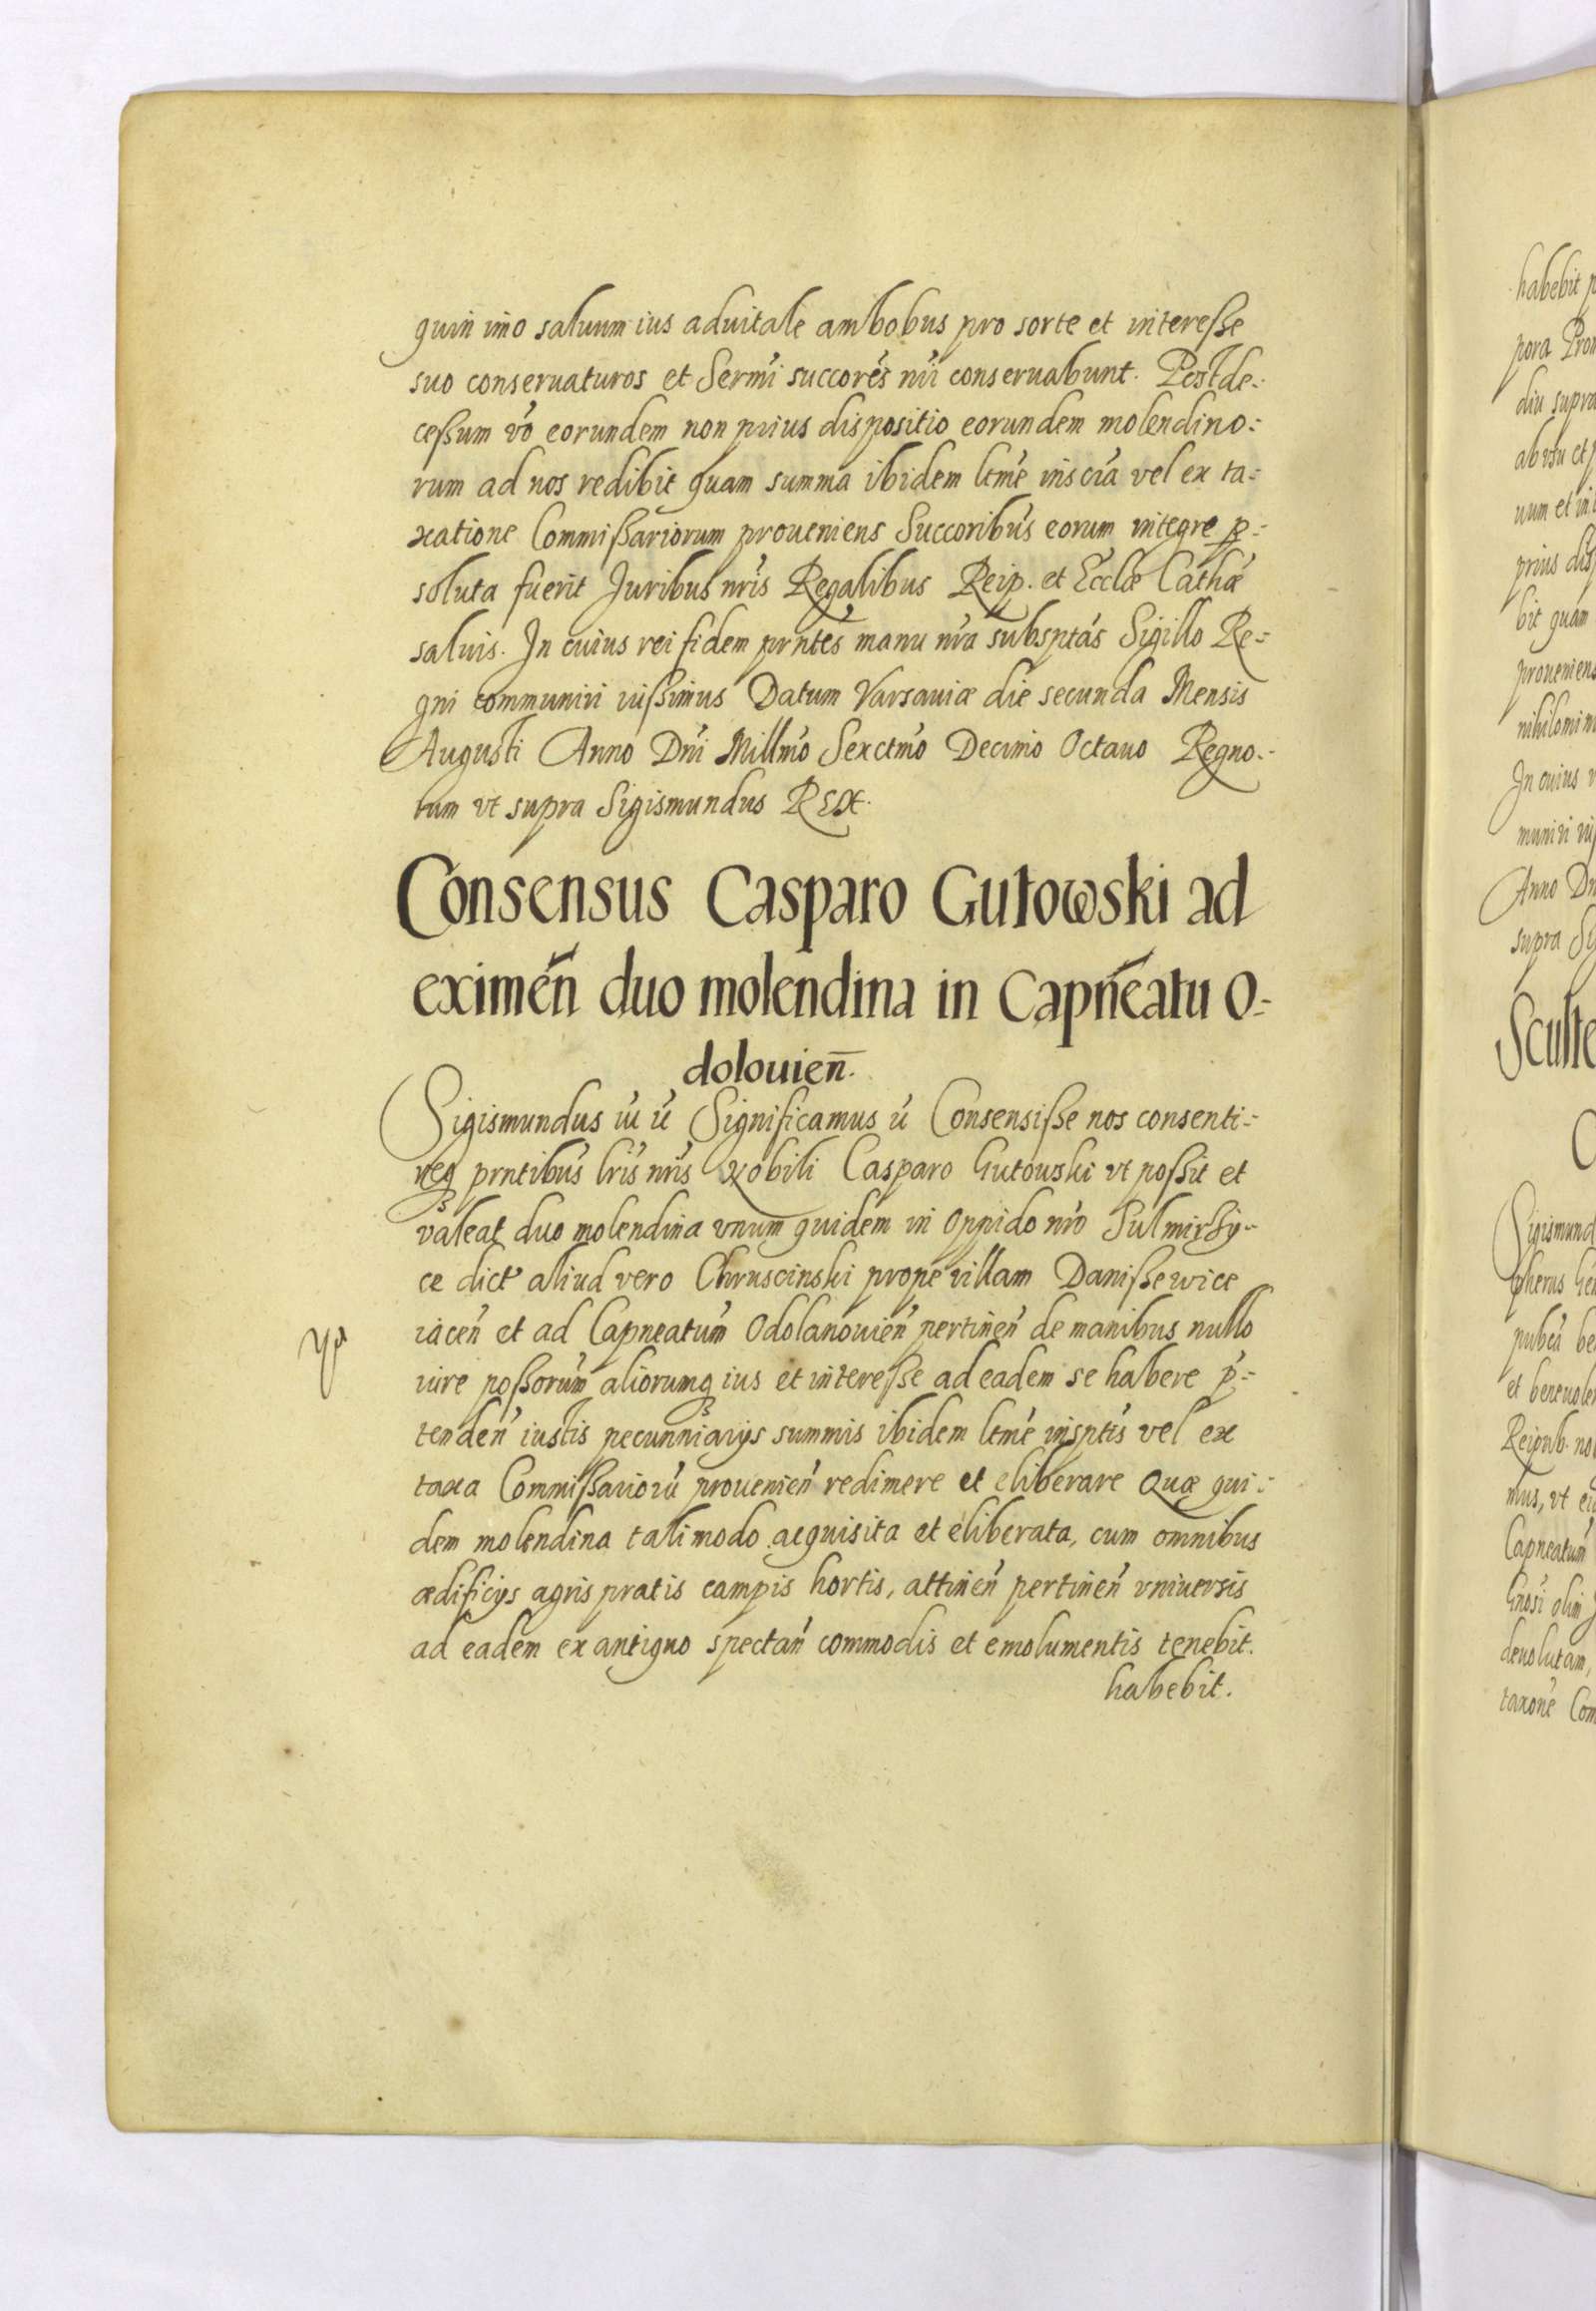 quin imo saluum ius aduitale ambobus pro sorte et interesse
suo conseruaturos et Sermi succores nri conseruabunt. Post de-
cessum vo eorundem non prius dispositio eorundem molendino-
rum ad nos redibit quam summa ibidem ltme inscia vel ex ta-
xatione Commissariorum proueniens Succoribus eorum integre p-
soluta fuerit Juribus nris Regalibus Reip. et Ecclæ Cathæ
saluis. In cuius rei fidem prntes manu nra subsptas Sigillo Re-
gni communiri iussimus Datum Varsauiæ die secunda Mensis
Augusti Anno Dni Millmo Sexctmo Decimo Octauo Regno-
rum vt supra Sigismundus Rex.
Consensus Casparo Gutowski ad
eximen duo molendina in Capneatu O-
dolouien.
Sigismundus iü ü Significamus ü Consensisse nos consenti-
req prntibus lris nris Nobili Casparo Gutowski vt possit et
valeat duo molendina vnum quidem in Oppido nro Sulmirsy-
ce dict aliud vero Chruscinski prope villam Danissewice
iacen et ad Capneatum Odolanouien pertinen de manibus nullo
iure possorum aliorumq ius et interesse ad eadem se habere p-
tenden iustis pecunniarijs summis ibidem ltme insptis vel ex
taxa Commissarioru prouenien redimere et eliberare Quæ qui-
dem molendina tali modo acquisita et eliberata, cum omnibus
ædificijs agris pratis campis hortis, attinen pertinen vniuersis
ad eadem ex antiquo spectan commodis et emolumentis tenebit.
habebit.
habebit
pora
diu supra
ab vsu et
uum et in
prius dis
bit quam
proueniens
nihilomin
In cuius
muniri
Anno Dn
supra
Sculte
Sigismund
pherus
et beneuolen
Reipub. no
mus, vt
Capneatum
olim
deuolutam,
taxone Com